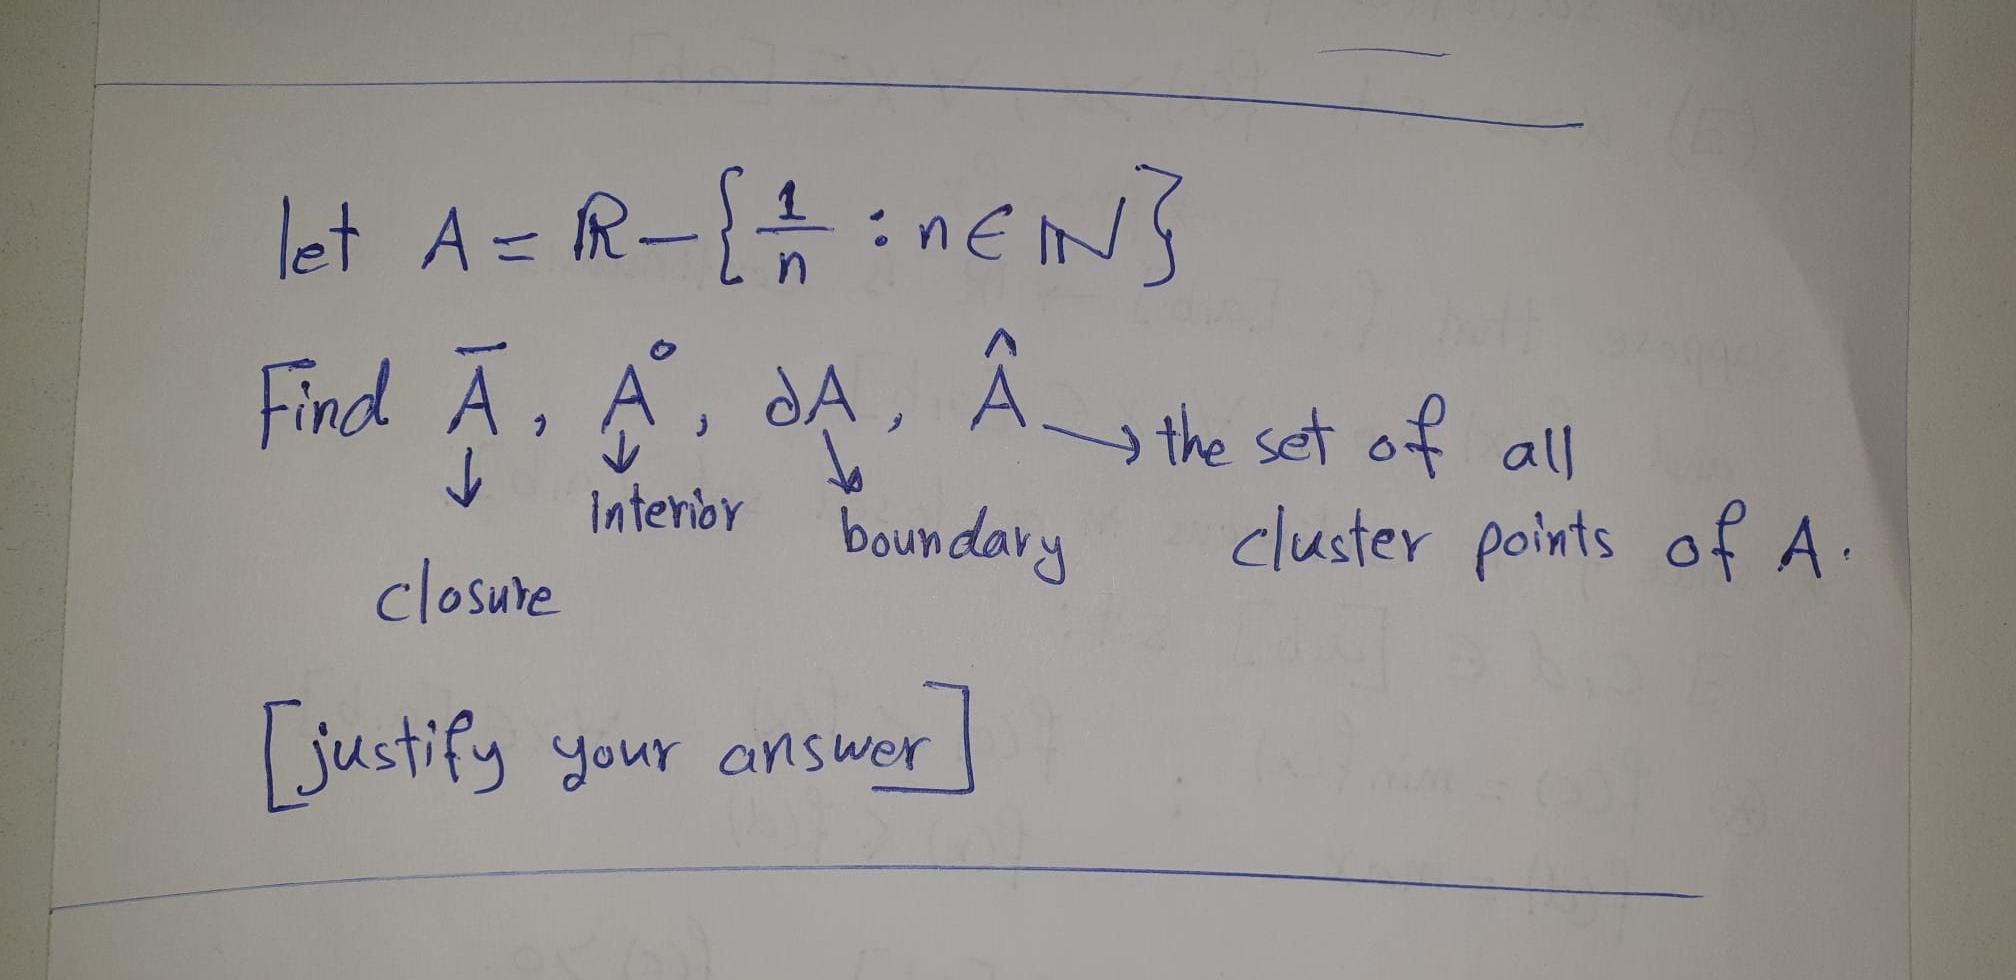 let A = ℝ - { 1/n : n ∈ ℕ }
Find Ā, A°, ∂A, Â → the set of all
cluster points of A.
↓ closure
↓ Interior
↘ boundary
[justify your answer]